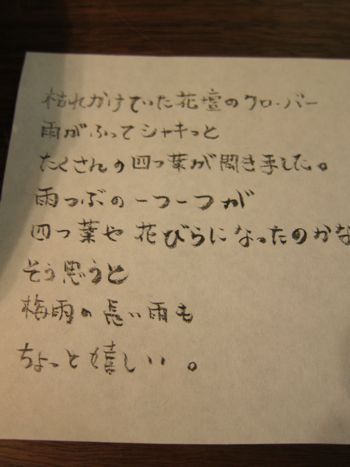 枯れかけていた花壇のクローバー
雨がふってシャキっと
たくさんの四つ葉が開き手した。
雨つぶの一つ一つが
四つ葉や花びらになったのかな
そう思うと
梅雨の長い雨も
ちょっと嬉しい。